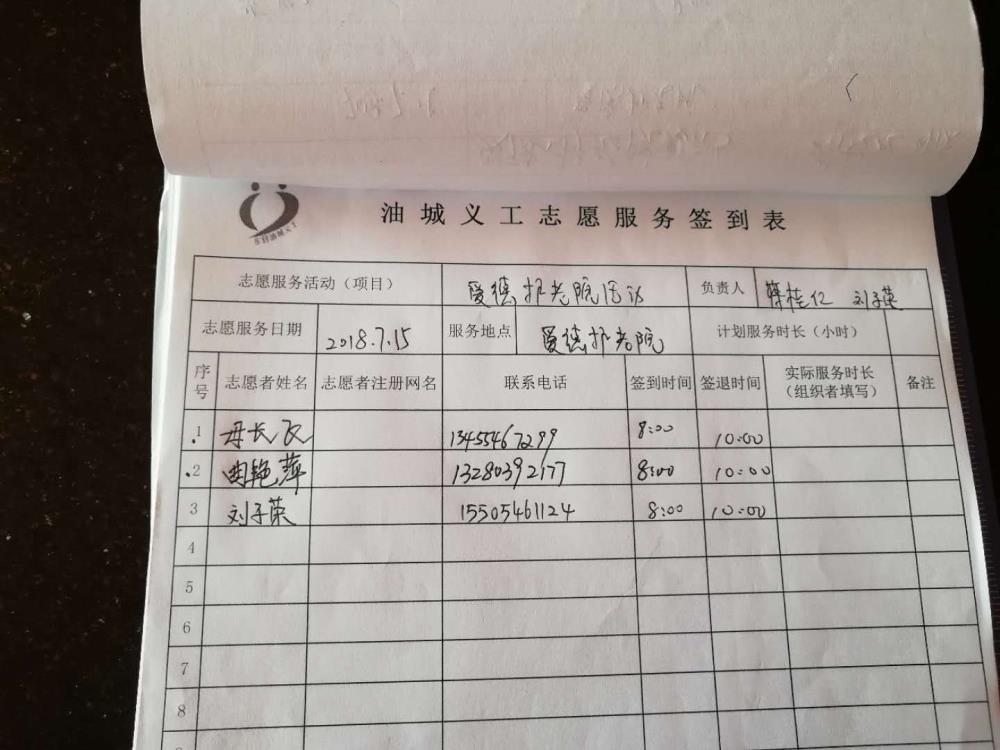 油城义工志愿服务签到表
东营油城义工
志愿服务活动（项目） 爱德护老院活动 负责人 陈桂仁 刘子荣
志愿服务日期 2018.7.15 服务地点 爱德护老院 计划服务时长（小时）
序号 志愿者姓名 志愿者注册网名 联系电话 签到时间 签退时间 实际服务时长（组织者填写） 备注
1 毋长民 13455467299 8:00 10:00
2 曲艳萍 13280392177 8:00 10:00
3 刘子荣 15505461124 8:00 10:00
4
5
6
7
8